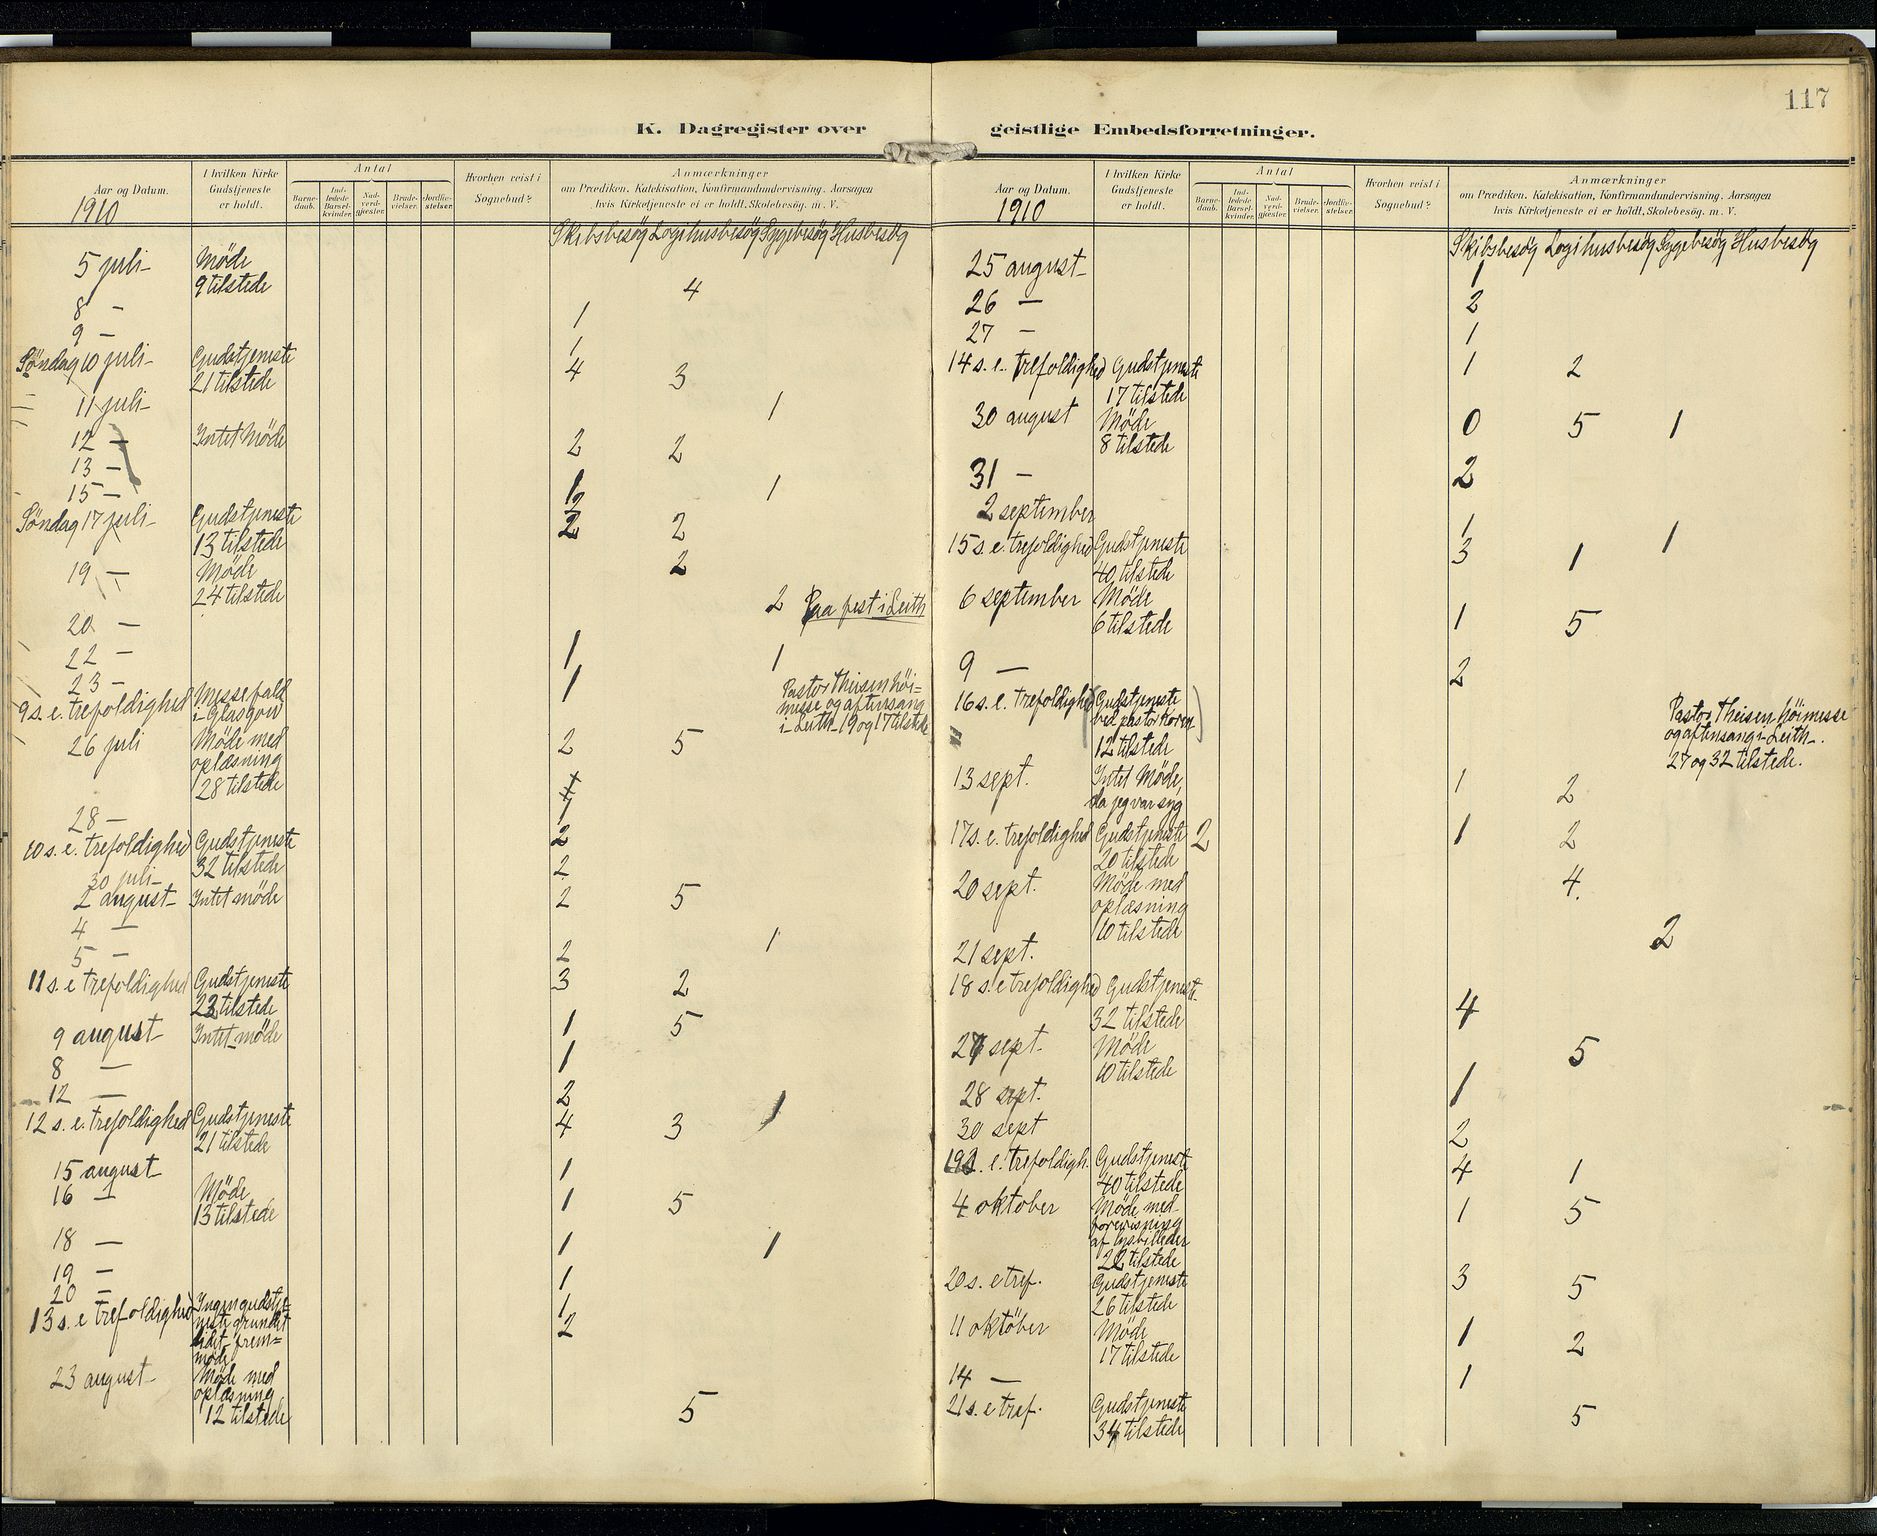 117
K. Dagregister over geistlige Embedsforretninger.
Aar og Datum.
I hvilken Kirke Gudstjeneste er holdt.
Antal
Barne-daab.
Ind-ledede Barsel-kvinder.
Nad-verd-gjester.
Brude-vielser.
Jordfæ-stelser.
Hvorhen reist i Sognebud?
Anmærkninger
om Prædiken, Katekisation, Konfirmandundervisning. Aarsagen
hvis Kirketjeneste ei er holdt, Skolebesög. m. V.
1910
Skibsbesög Logihusbesög Sygebesög Husbesög
5 juli- Möde
9 tilstede 4
8 - 1
9 - 1
Söndag 10 juli- Gudstjeneste 4 3
21 tilstede
11 juli- 1
12 - Intet Möde 2 2
13 -
15 - 1 1
2
Söndag 17 juli- Gudstjeneste 2 2
13 tilstede
19 - Möde 2
24 tilstede
2 Paa fest i Leith
20 -
22 - 1 1
23 - 1
9 s. e. trefoldighed Messefald
i Glasgow
Pastor Theisen höi=
messe og aftensang
i Leith 19 og 17 tilstede
26 juli Möde med 2 5
oplæsning
28 tilstede
28 - 1
10 s. e. trefoldighed Gudstjeneste 2
32 tilstede
30 juli- 2
2 august- Intet möde 2 5
4 - 1
5 - 2
11 s. e trefoldighed Gudstjeneste 3 2
23 tilstede
9 august Intet möde 1 5
8 - 1
12 - 2
12 s. e. trefoldighed Gudstjeneste 4 3 1
21 tilstede
15 august 1
16 - Möde 1 5
13 tilstede
18 - 1 1
19 - 1
20 - 1
13 s. e trefoldighed Ingen gudstje= 2
neste grundet
lidet frem=
möde
23 august- Möde med
oplæsning
12 tilstede 5
Aar og Datum.
I hvilken Kirke Gudstjeneste er holdt.
Antal
Barne-daab.
Ind-ledede Barsel-kvinder.
Nad-verd-gjester.
Brude-vielser.
Jordfæ-stelser.
Hvorhen reist i Sognebud?
Anmærkninger
om Prædiken, Katekisation, Konfirmandundervisning. Aarsagen
hvis Kirketjeneste ei er holdt, Skolebesög. m. V.
1910
Skibsbesög Logihusbesög Sygebesög Husbesög
25 august- 1
26 - 2
27 - 1
14 s. e. trefoldighed Gudstjeneste 1 2
17 tilstede
30 august Möde 0 5 1
8 tilstede
31 - 2
2 september 1 1
15 s. e. trefoldighed Gudstjeneste 3 1
40 tilstede
6 september Möde 1 5
6 tilstede
9 - 2
16 s. e. trefoldighed (Gudstjeneste
ved pastor Koren)
12 tilstede
Pastor Theisen höimesse
og aftensang i Leith.
27 og 32 tilstede.
13 sept. Intet Möde, 1 2
da jeg var syg
17 s. e. trefoldighed Gudstjeneste 2 1 2
20 tilstede
20 sept. Möde med 4.
oplæsning
10 tilstede
21 sept. 2
18 s. e trefoldighed Gudstjeneste 4
32 tilstede
27 sept. Möde 5
10 tilstede
28 sept. 1
30 sept 2
19 s. e. trefoldigh. Gudstjeneste 4 1
40 tilstede
4 oktober Möde med 1 5
forevisning
af lysbilleder
22 tilstede
20 s. e tref. Gudstjeneste 3 5
26 tilstede
11 oktöber Möde 1 2
17 tilstede
14 - 1
21 s. e tref. Gudstjeneste 5
34 tilstede